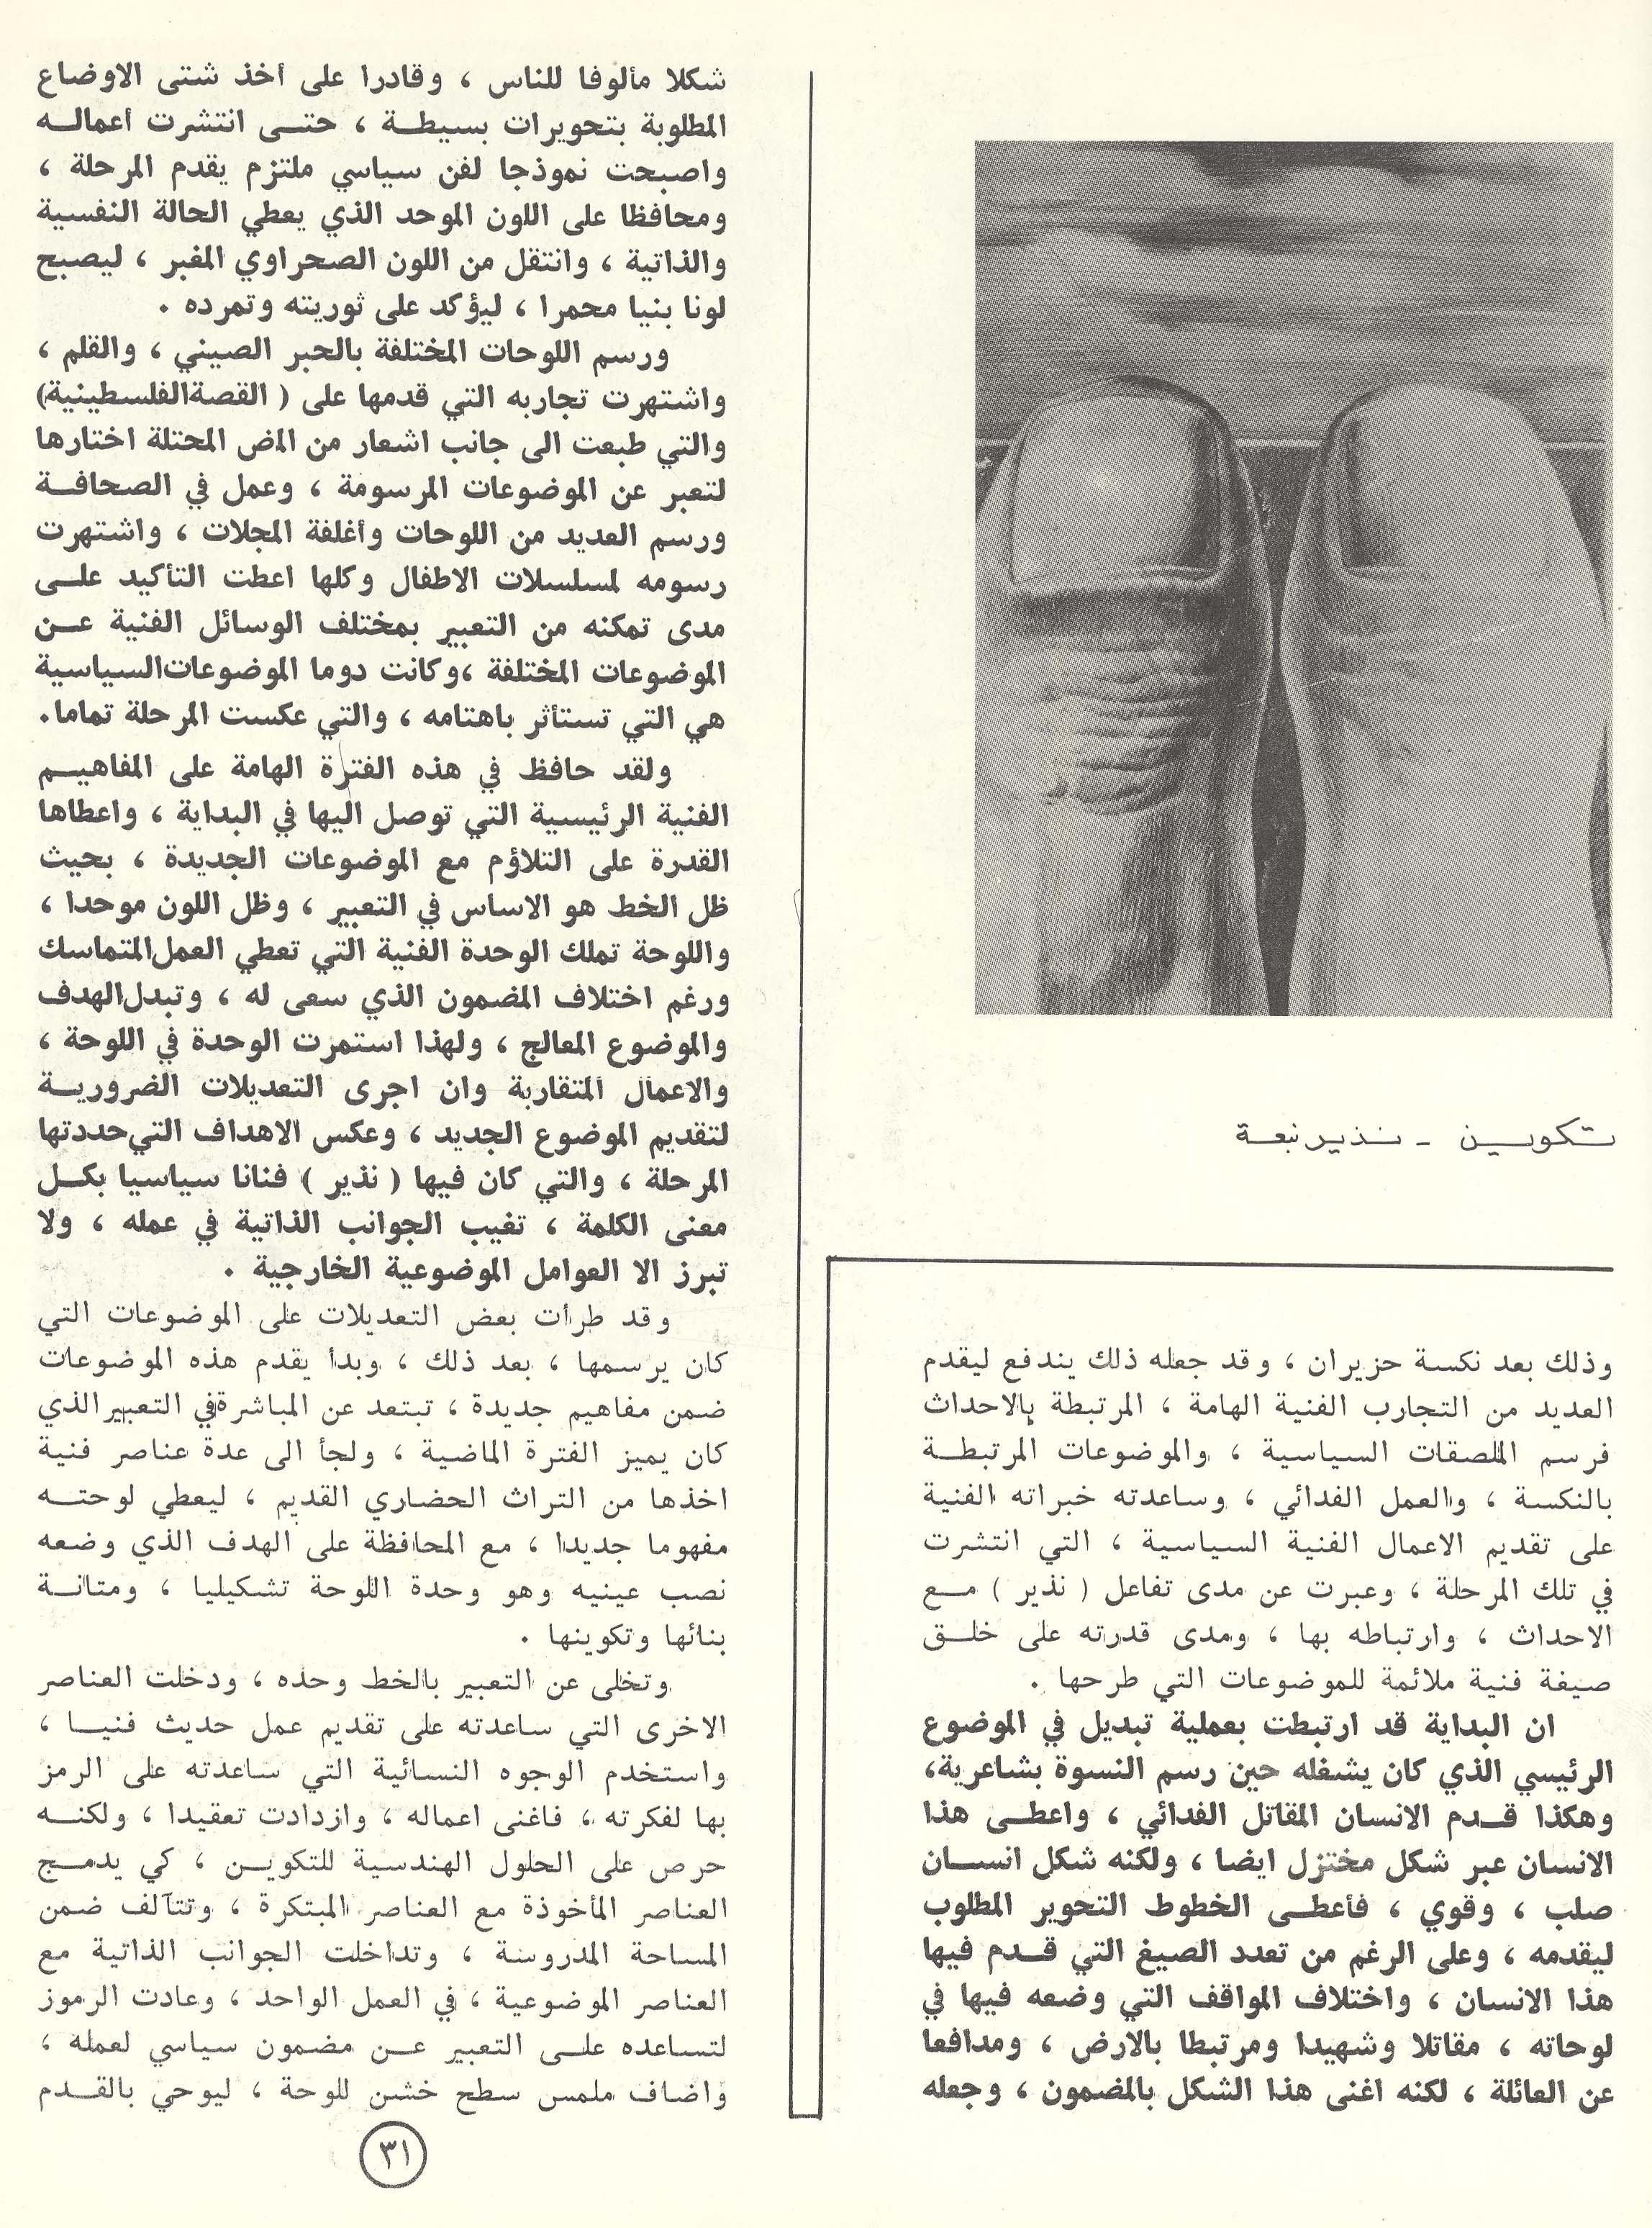 تكوين - نذير نبعة
وذلك بعد نكسة حزيران ، وقد جعله ذلك يندفع ليقدم
العديد من التجارب الفنية الهامة ، المرتبطة بالاحداث
فرسم الملصقات السياسية ، والموضوعات المرتبطة
بالنكسة ، والعمل الفدائي ، وساعدته خبراته الفنية
على تقديم الاعمال الفنية السياسية ، التي انتشرت
في تلك المرحلة ، وعبرت عن مدى تفاعل ( نذير ) مع
الاحداث ، وارتباطه بها ، ومدى قدرته على خلق
صيغة فنية ملائمة للموضوعات التي طرحها .
ان البداية قد ارتبطت بعملية تبديل في الموضوع
الرئيسي الذي كان يشغله حين رسم النسوة بشاعرية،
وهكذا قدم الانسان المقاتل الفدائي ، واعطى هذا
الانسان عبر شكل مختزل ايضا ، ولكنه شكل انسان
صلب ، وقوي ، فأعطى الخطوط التحوير المطلوب
ليقدمه ، وعلى الرغم من تعدد الصيغ التي قدم فيها
هذا الانسان ، واختلاف المواقف التي وضعه فيها في
لوحاته ، مقاتلا وشهيدا ومرتبطا بالارض ، ومدافعا
عن العائلة ، لكنه اغنى هذا الشكل بالمضمون ، وجعله
شكلا مألوفا للناس ، وقادرا على أخذ شتى الاوضاع
المطلوبة بتحويرات بسيطة ، حتى انتشرت أعماله
واصبحت نموذجا لفن سياسي ملتزم يقدم المرحلة ،
ومحافظا على اللون الموحد الذي يعطي الحالة النفسية
والذاتية ، وانتقل من اللون الصحراوي المغبر ، ليصبح
لونا بنيا محمرا ، ليؤكد على ثوريته وتمرده .
ورسم اللوحات المختلفة بالحبر الصيني ، والقلم ،
واشتهرت تجاربه التي قدمها على ( القصة الفلسطينية)
والتي طبعت الى جانب اشعار من المض المحتلة اختارها
لتعبر عن الموضوعات المرسومة ، وعمل في الصحافة
ورسم العديد من اللوحات وأغلفة المجلات ، واشتهرت
رسومه لمسلسلات الاطفال وكلها اعطت التأكيد على
مدى تمكنه من التعبير بمختلف الوسائل الفنية عن
الموضوعات المختلفة ،وكانت دوما الموضوعات السياسية
هي التي تستأثر باهتامه ، والتي عكست المرحلة تماما.
ولقد حافظ في هذه الفترة الهامة على المفاهيم
الفنية الرئيسية التي توصل اليها في البداية ، واعطاها
القدرة على التلاؤم مع الموضوعات الجديدة ، بحيث
ظل الخط هو الاساس في التعبير ، وظل اللون موحدا ،
واللوحة تملك الوحدة الفنية التي تعطي العمل المتماسك
ورغم اختلاف المضمون الذي سعى له ، وتبدل الهدف
والموضوع المعالج ، ولهذا استمرت الوحدة في اللوحة ،
والاعمال المتقاربة وان اجرى التعديلات الضرورية
لتقديم الموضوع الجديد ، وعكس الاهداف التي حددتها
المرحلة ، والتي كان فيها ( نذير ) فنانا سياسيا بكل
معنى الكلمة ، تغيب الجوانب الذاتية في عمله ، ولا
تبرز الا العوامل الموضوعية الخارجية .
وقد طرأت بعض التعديلات على الموضوعات التي
كان يرسمها ، بعد ذلك ، وبدأ يقدم هذه الموضوعات
ضمن مفاهيم جديدة ، تبتعد عن المباشرة في التعبير الذي
كان يميز الفترة الماضية ، ولجأ الى عدة عناصر فنية
اخذها من التراث الحضاري القديم ، ليعطي لوحته
مفهوما جديدا ، مع المحافظة على الهدف الذي وضعه
نصب عينيه وهو وحدة اللوحة تشكيليا ، ومتانة
بنائها وتكوينها .
وتخلى عن التعبير بالخط وحده ، ودخلت العناصر
الاخرى التي ساعدته على تقديم عمل حديث فنيا ،
واستخدم الوجوه النسائية التي ساعدته على الرمز
بها لفكرته ، فاغنى اعماله ، وازدادت تعقيدا ، ولكنه
حرص على الحلول الهندسية للتكوين ، كي يدمج
العناصر المأخوذة مع العناصر المبتكرة ، وتتآلف ضمن
المساحة المدروسة ، وتداخلت الجوانب الذاتية مع
العناصر الموضوعية ، في العمل الواحد ، وعادت الرموز
لتساعده على التعبير عن مضمون سياسي لعمله ،
واضاف ملمس سطح خشن للوحة ، ليوحي بالقدم
٣١